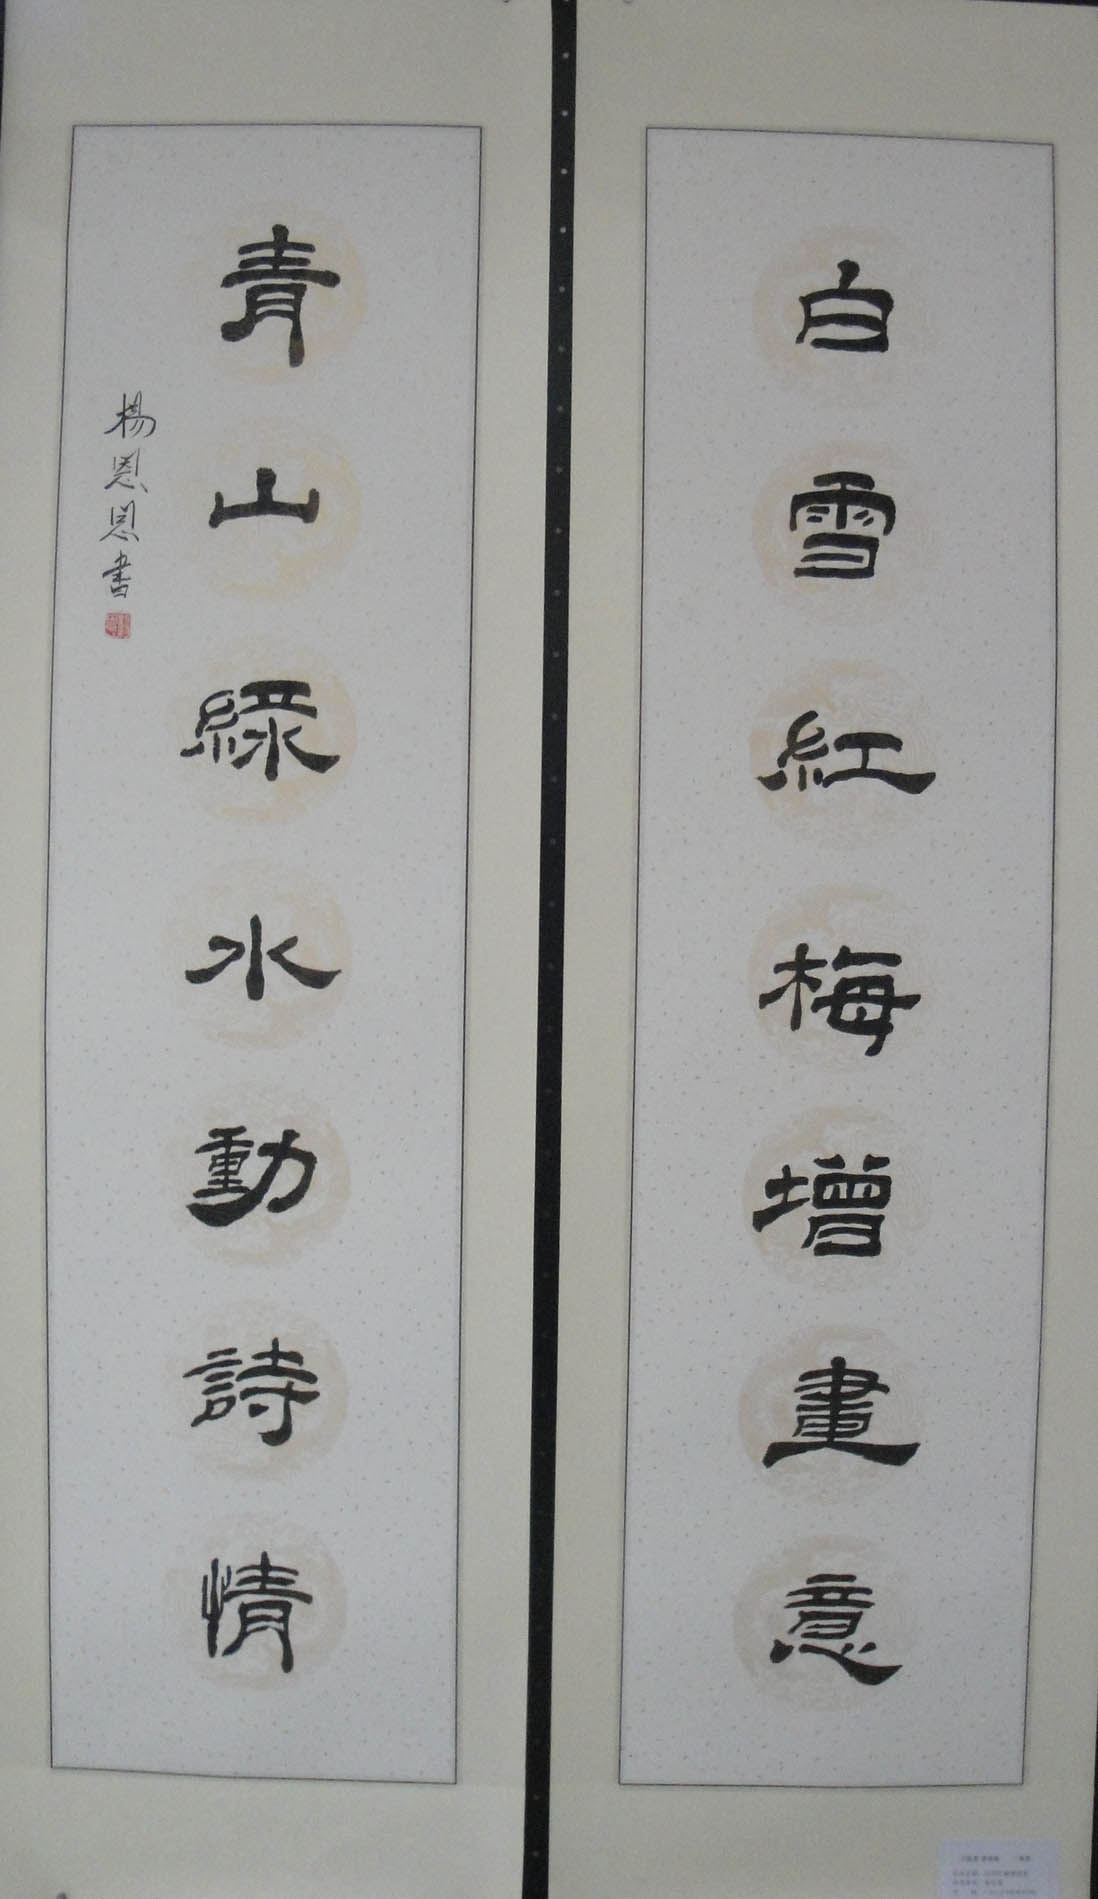 白雪紅梅增畫意
青山綠水動詩情
楊恩恩書